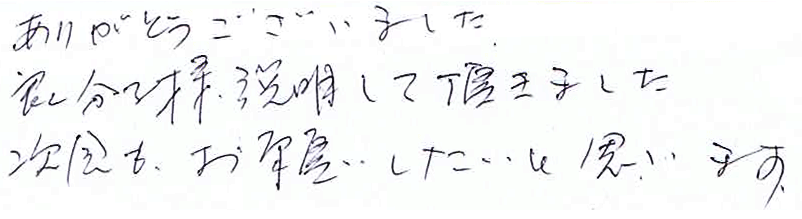 ありがとうございました
良く分る様、説明して頂きました
次回も、お願いしたいと思います。